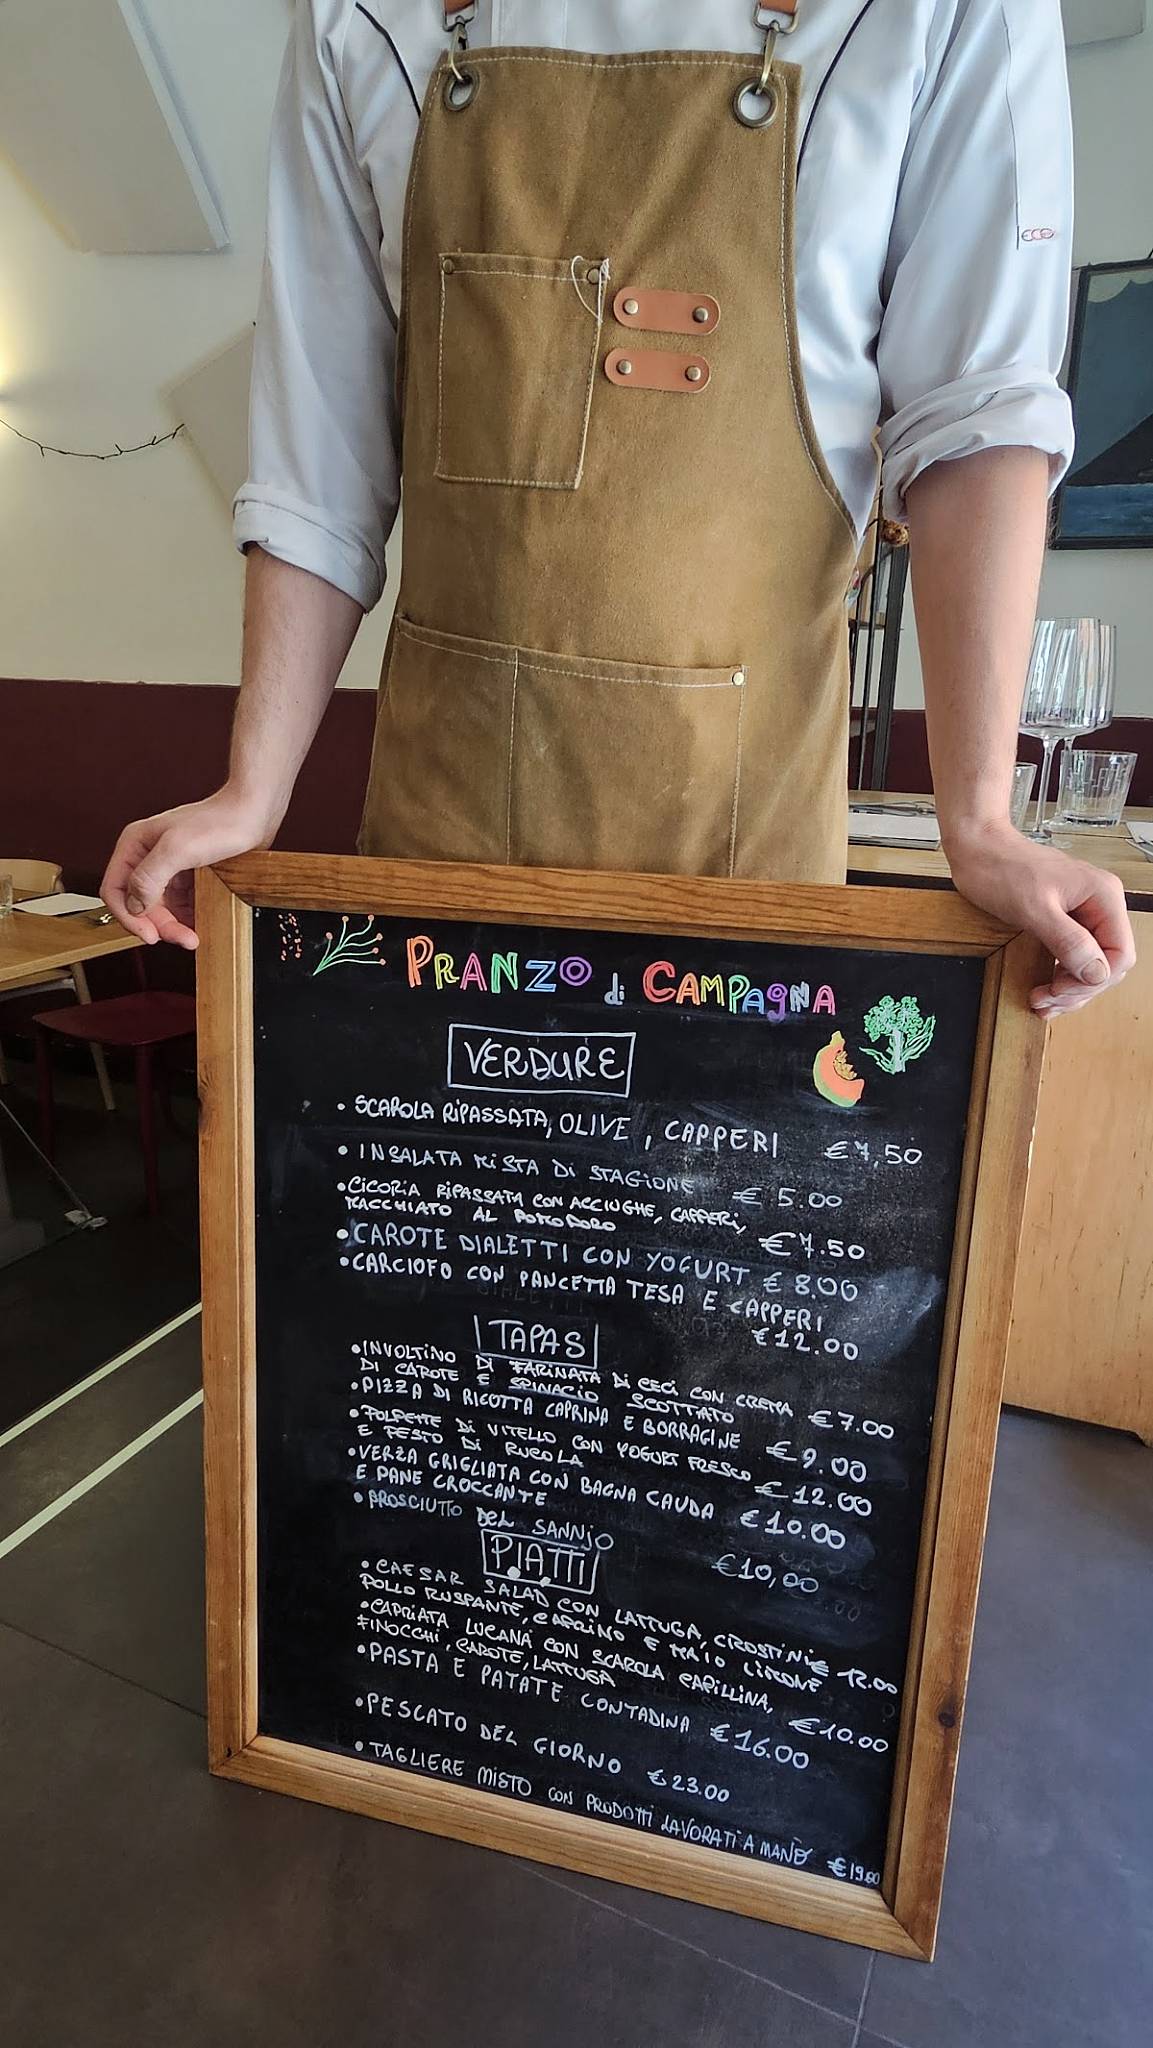 ECO
PRANZO di CAMPAGNA
VERDURE
• SCAROLA RIPASSATA, OLIVE, CAPPERI €7,50
• INSALATA MISTA DI STAGIONE € 5.00
• CICORIA RIPASSATA CON ACCIUGHE, CAPPERI,
MACCHIATO AL POMODORO €7.50
• CAROTE DIALETTI CON YOGURT € 8.00
• CARCIOFO CON PANCETTA TESA E CAPPERI
€12.00
TAPAS
• INVOLTINO DI FARINATA DI CECI CON CREMA
DI CAROTE E SPINACIO SCOTTATO €7.00
• PIZZA DI RICOTTA CAPRINA E BORRAGINE €9.00
• POLPETTE DI VITELLO CON YOGURT FRESCO
E PESTO DI RUCOLA €12.00
• VERZA GRIGLIATA CON BAGNA CAUDA
E PANE CROCCANTE €10.00
• PROSCIUTTO DEL SANNIO €10,00
PIATTI
• CAESAR SALAD CON LATTUGA, CROSTINI,
POLLO RUSPANTE, CAPRINO E MAIO LIMONE € 12.00
• CAPRIATA LUCANA CON SCAROLA CAPILLINA,
FINOCCHI, CAROTE, LATTUGA €10.00
• PASTA E PATATE CONTADINA €16.00
• PESCATO DEL GIORNO €23.00
• TAGLIERE MISTO CON PRODOTTI LAVORATI A MANO €19.00